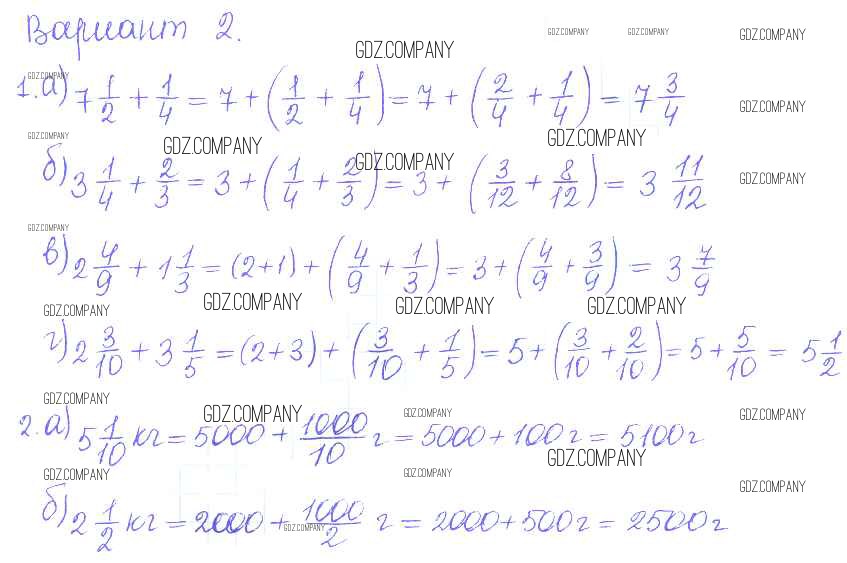 Вариант 2.
GDZ.COMPANY GDZ.COMPANY GDZ.COMPANY GDZ.COMPANY
GDZ.COMPANY
1. а) 7 1/2 + 1/4 = 7 + (1/2 + 1/4) = 7 + (2/4 + 1/4) = 7 3/4
GDZ.COMPANY
GDZ.COMPANY GDZ.COMPANY GDZ.COMPANY GDZ.COMPANY
б) 3 1/4 + 2/3 = 3 + (1/4 + 2/3) = 3 + (3/12 + 8/12) = 3 11/12
GDZ.COMPANY
GDZ.COMPANY
в) 2 4/9 + 1 1/3 = (2+1) + (4/9 + 1/3) = 3 + (4/9 + 3/9) = 3 7/9
GDZ.COMPANY GDZ.COMPANY GDZ.COMPANY GDZ.COMPANY
г) 2 3/10 + 3 1/5 = (2+3) + (3/10 + 1/5) = 5 + (3/10 + 2/10) = 5 + 5/10 = 5 1/2
GDZ.COMPANY GDZ.COMPANY GDZ.COMPANY GDZ.COMPANY
2. а) 5 1/10 кг = 5000 + 1000/10 г = 5000 + 100 г = 5100 г
GDZ.COMPANY GDZ.COMPANY GDZ.COMPANY GDZ.COMPANY
б) 2 1/2 кг = 2000 + 1000/2 г = 2000 + 500 г = 2500 г
GDZ.COMPANY